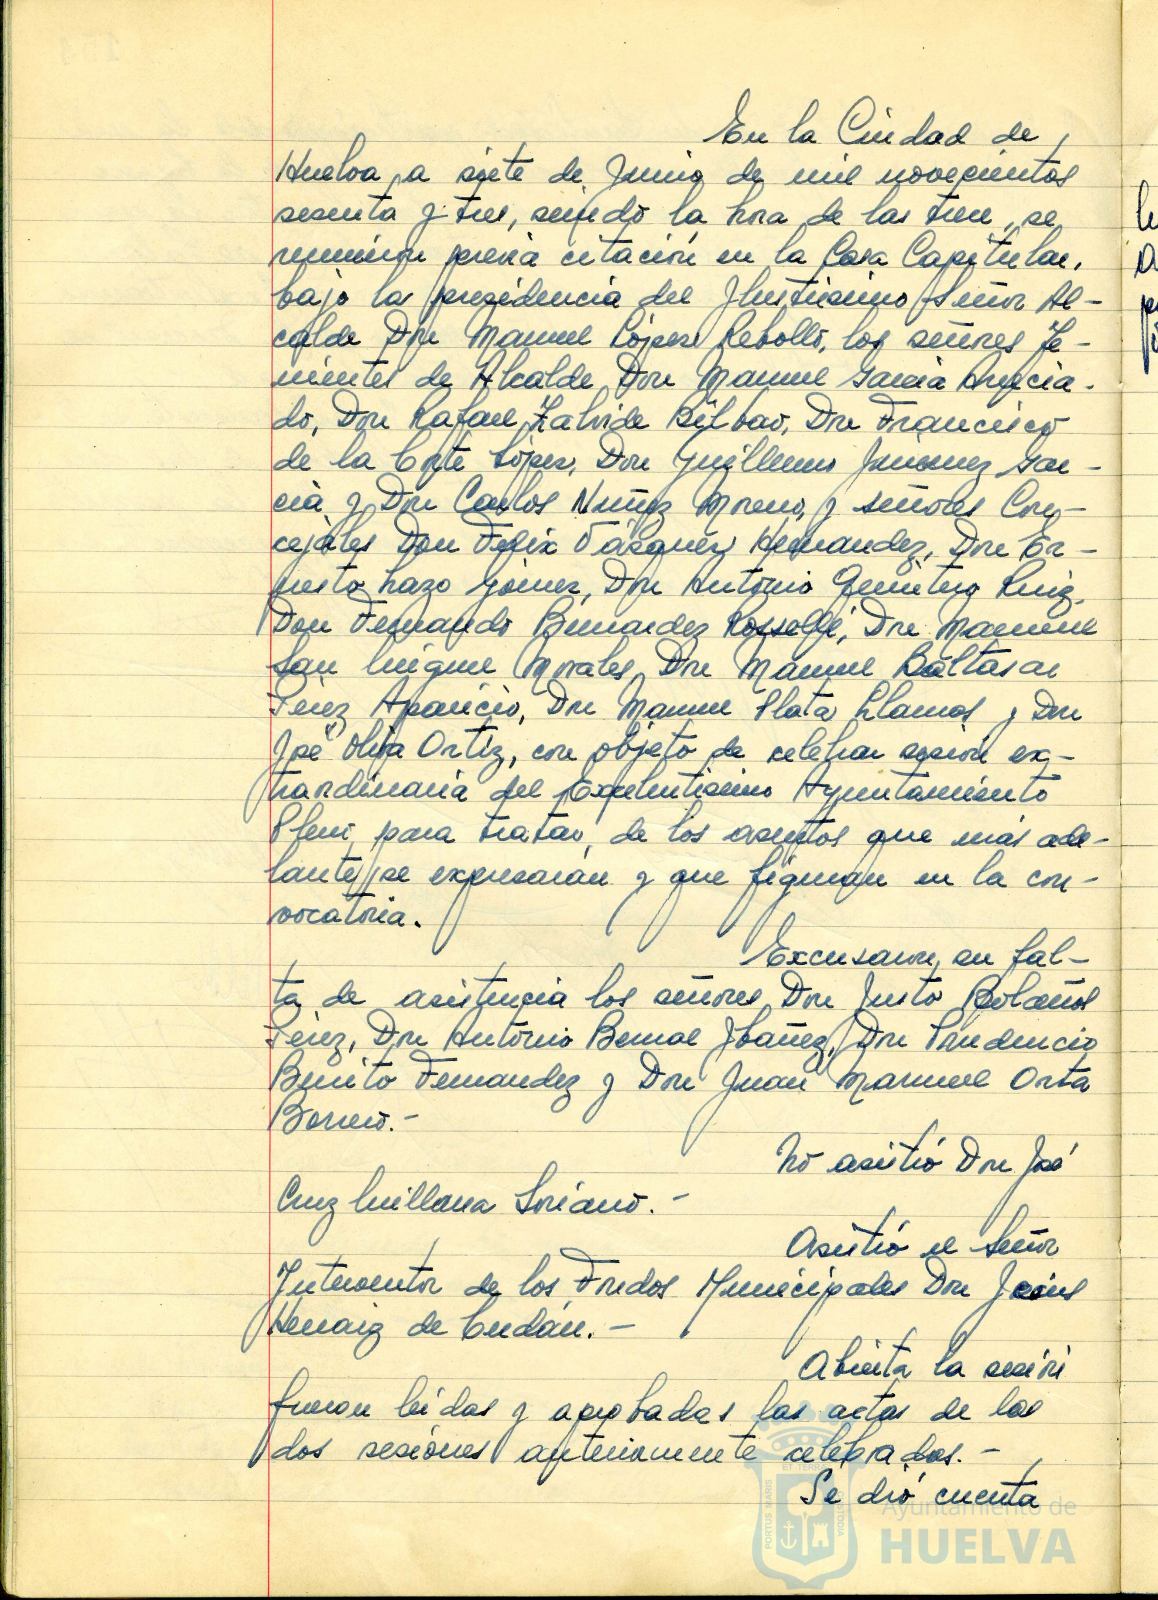 En la Ciudad de
Huelva, a siete de Junio de mil novecientos
sesenta y tres, siendo la hora de las trece, se
reunieron previa citación en la Casa Capitular,
bajo la presidencia del Ilustrisimo Señor Al-
calde Don Manuel López Rebollo, los señores Te-
nientes de Alcalde Don Manuel Garcia
do, Don Rafael Zalvide Bilbao, Don Francisco
de la Corte López, Don Guillermo Jimenez Gar-
cia y Don Carlos Nuñez Moreno, y señores Con-
cejales Don Felix Vázquez Hernandez, Don Er-
nesto Lazo Gómez, Don Antonio Quintero Ruiz,
Don Fernando Bermudez Don Manuel
San Miguel Morales, Don Manuel Baltasar
Pérez Aparicio, Don Manuel Plata Llamas y Don
José Oliva Ortiz, con objeto de celebrar sesión ex-
traordinaria del Excelentisimo Ayuntamiento
Pleno, para tratar, de los asuntos que más ade-
lante se expresarán y que figuran en la con-
vocatoria.
Excusaron su fal-
ta de asistencia los señores Don Justo Bolaños
Pérez, Don Antonio Bernal Ibañez, Don Prudencio
Benito Fernandez y Don Juan Manuel Orta
Borrero.-
No asistió Don José
Cruz Millana Soriano.-
Asistió el Señor
Interventor de los Fondos Municipales Don Jesús
de Cerdán.-
Abierta la sesión
fueron leidas y aprobadas las actas de las
dos sesiones anteriormente celebradas.-
Se dió cuenta
Ayuntamiento de
HUELVA